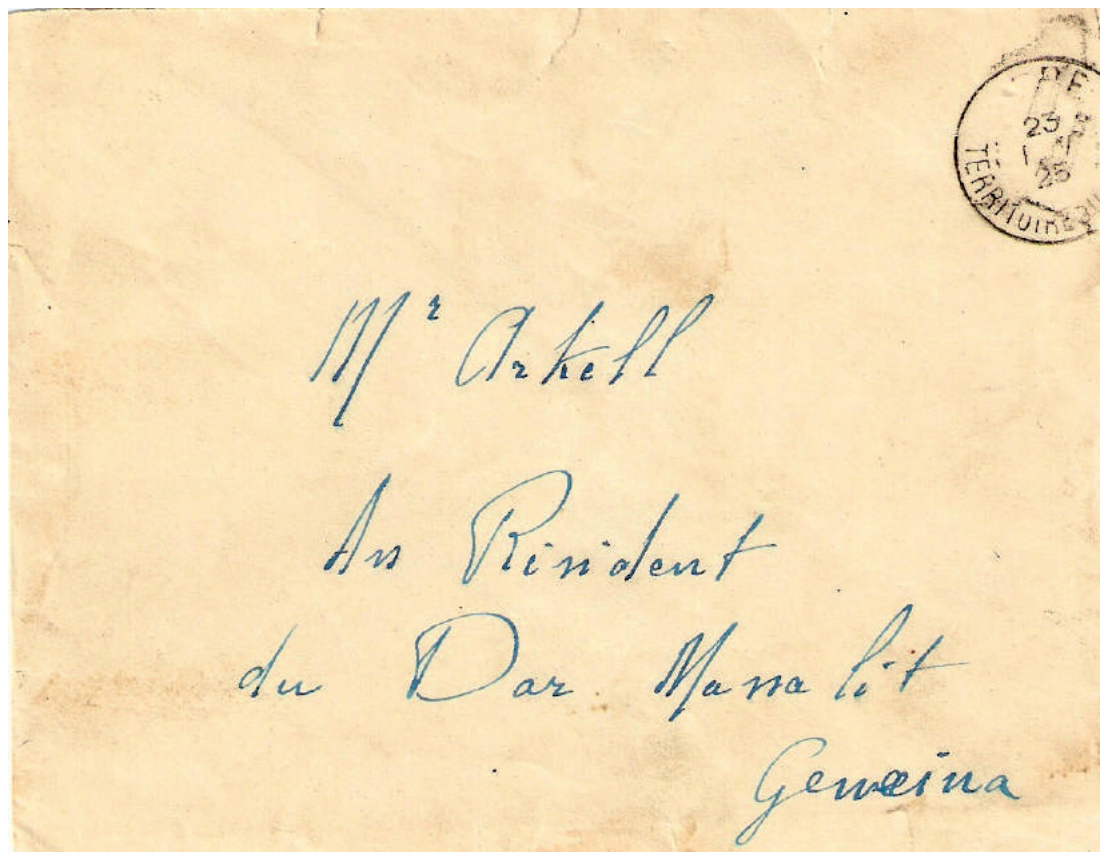 23
25
TERRITOIRE DU
Mr Arkell
As Résident
du Dar Massalit
Geneina